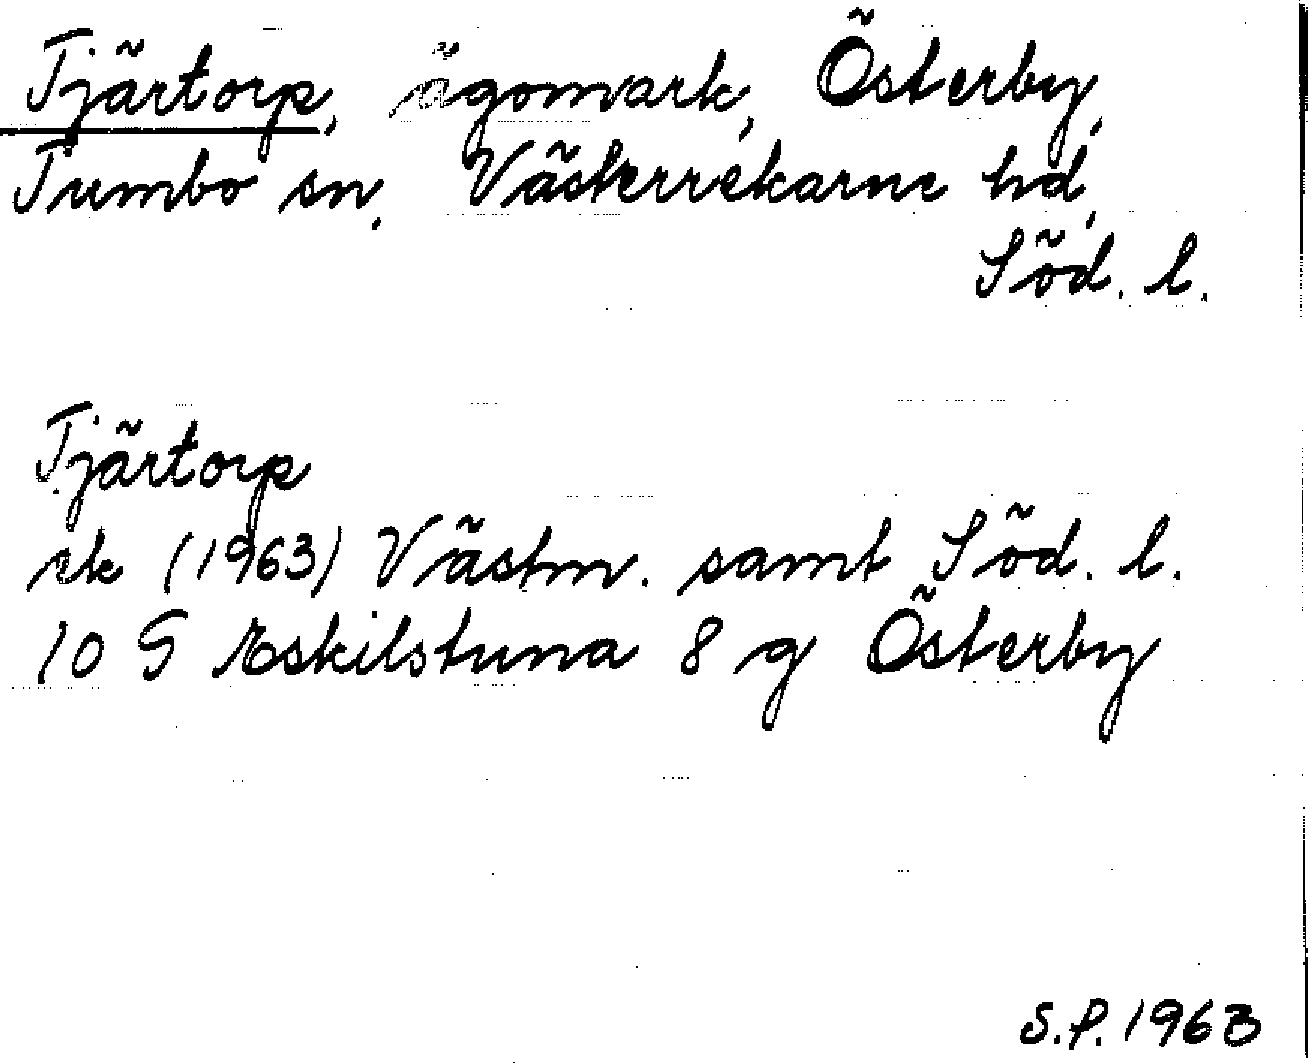 Tjärtorp, ägomark, Österby,
Tumbo sn, Västerrekarne hd,
Söd. l.
Tjärtorp
ek (1963) Västm. samt Söd. l.
10 G Eskilstuna 8 g Österby
S.P. 1963